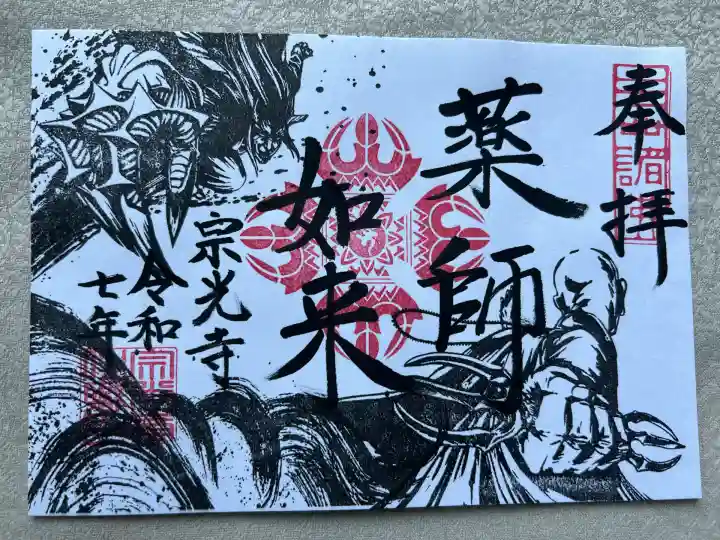 奉拝
薬師
如来
宗光寺
令和
七年